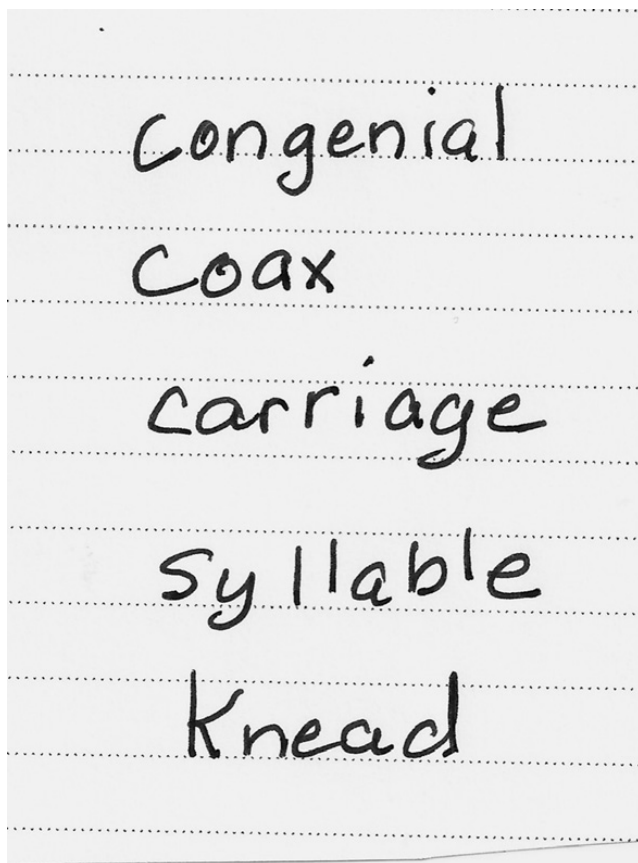 congenial
coax
carriage
syllable
Knead